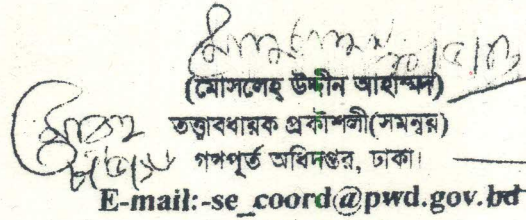 (মোসলেহ্ উদ্দীন আহাম্মদ)
তত্ত্বাবধায়ক প্রকৌশলী(সমন্বয়)
গণপূর্ত অধিদপ্তর, ঢাকা।
E-mail:-se_coord@pwd.gov.bd